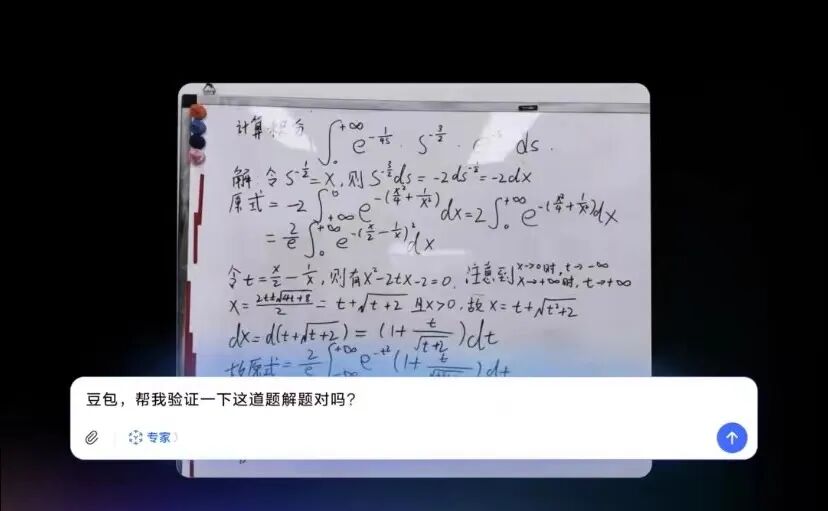 计算积分 ∫₀^{+∞} e^{-1/4s} · s^{-3/2} · ds.
解: 令 s^{-1/2} = x, 则 s^{-3/2}ds = -2ds^{-1/2} = -2dx
原式 = -2∫_{+∞}^{0} e^{-(x²/4 + 1/x²)}dx = 2∫₀^{+∞} e^{-(x²/4 + 1/x²)}dx
= 2/e ∫₀^{+∞} e^{-(x/2 - 1/x)²}dx
令 t = x/2 - 1/x, 则有 x²-2tx-2=0, 注意到 x→0时, t→-∞
x→+∞时, t→+∞
x = (2t±√(4t+8))/2 = t+√(t+2) 且x>0, 故 x = t+√(t²+2)
dx = d(t+√(t+2)) = (1+t/√(t+2))dt
故原式 = 2/e ∫_{-∞}^{+∞} e^{-t²}(1+
豆包，帮我验证一下这道题解题对吗?
专家